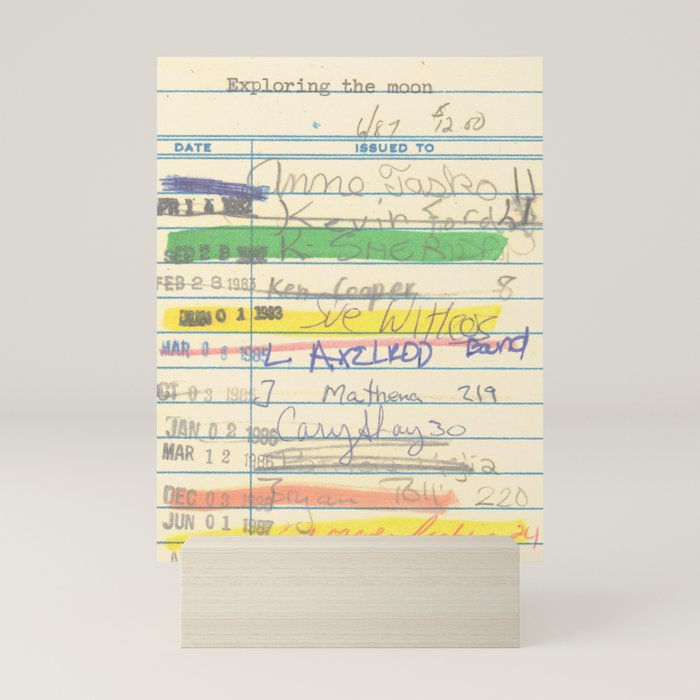 Exploring the moon
6/87 $12.00
DATE ISSUED TO
Anne Tasko 11
APR 1 1982 Kevin Ford
SEP 2 9 K. SHERIDAN
FEB 2 8 1983 Ken Cooper 8
JUN 0 1 1983 Sue
MAR 0 6 1985 L AXELROD Bound
OCT 0 3 1985 J Mathena 219
JAN 0 2 1986 Cary Shay 30
MAR 1 2 1986
DEC 0 3 1986 Bryan 220
JUN 0 1 1987 24